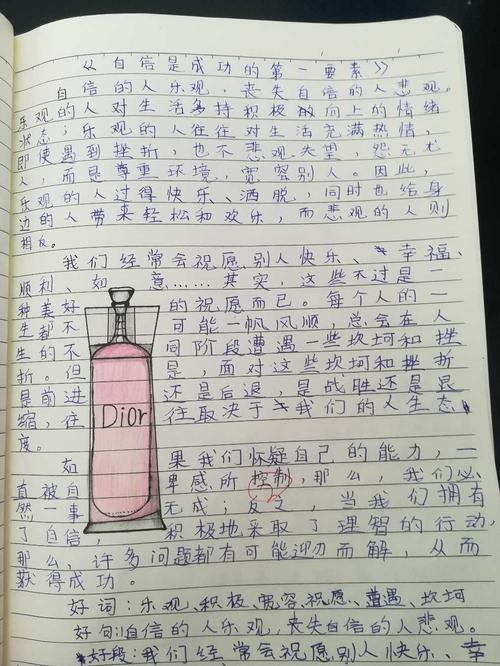 《自信是成功的第一要素》
自信的人乐观,丧失自信的人悲观。
乐观的人对生活多持积极向上的情绪
状态;乐观的人往往对生活充满热情,
即使遇到挫折,也不悲观失望,怨无尤
人,而是尊重环境,宽容别人。因此,
乐观的人过得快乐、洒脱,同时也给身
边的人带来轻松和欢乐,而悲观的人则
相反。
我们经常会祝愿别人快乐、幸福、
顺利、如意……其实,这些不过是一
种美好的祝愿而已。每个人的一
生都不可能一帆风顺,总会在人
生的不同阶段遭遇一些坎坷和挫
折。但是,面对这些坎坷和挫折
是前进还是后退,是战胜还是畏
缩,往往取决于我们的人生态
度。
Dior
如果我们怀疑自己的能力,一
直被自卑感所控制,那么,我们必
然一事无成;反之,当我们拥有
了自信,积极地采取了理智的行动,
那么,许多问题都有可能迎刃而解,从而
获得成功。
好词:乐观、积极、宽容、祝愿、遭遇、坎坷
好句:自信的人乐观,丧失自信的人悲观。
好段:我们经常会祝愿别人快乐、幸